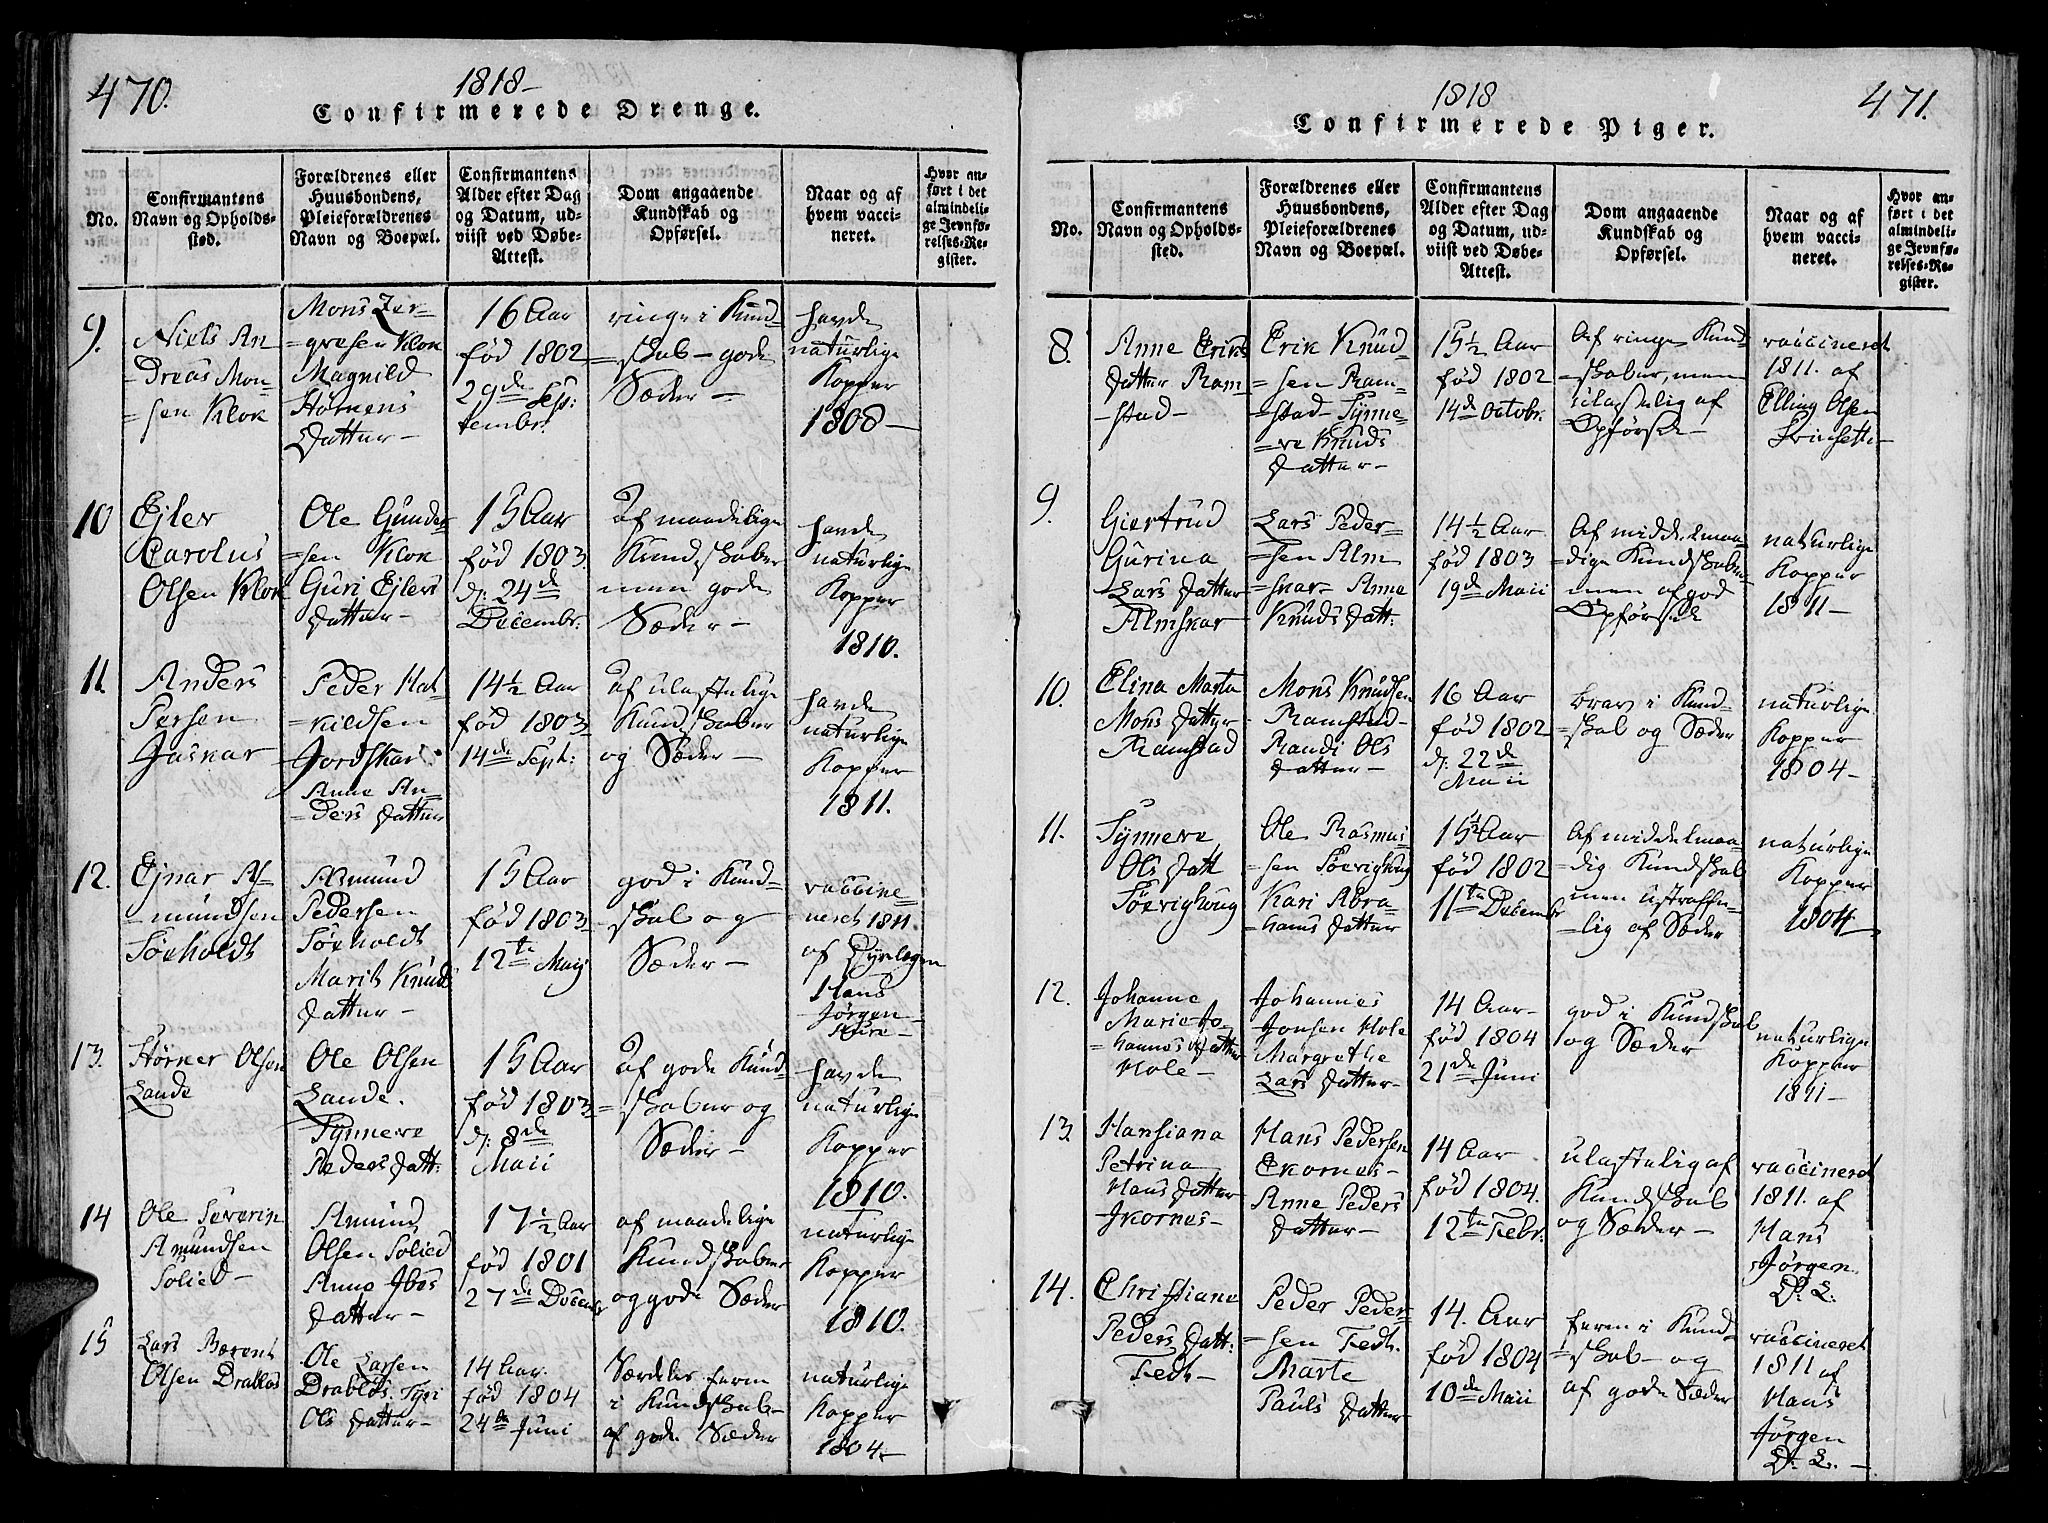 470.
1818-
Confirmerede Drenge.
No.
Confirmantens
Navn og Opholds-
sted.
Forældrenes eller
Huusbondens,
Pleieforældrenes
Navn og Boepæl.
Confirmantens
Alder efter Dag
og Datum, ud-
viist ved Døbe-
Attest.
Dom angaaende
Kundskab og
Opførsel.
Naar og af
hvem vacci-
neret.
Hvor an-
ført i det
almindeli-
ge Jevnfø-
relses-Re-
gister.
9.
Niels An
=dreas Mon=
=sen Klok
Mons
=gresen Klok
Magnild
Størnens
Datter-
16 Aar
født 1802
29de Sep:
tembr.
ringe i Kund=
=skab- gode
Sæder-
havde
naturlige
Kopper
1808-
10
Ejler
Carolus
Olsen Klok
Ole Gunder
=sen Klok
Guri Ejlers
Datter-
15 Aar
fød 1803.
d: 24de
Decembr.
Af maadelige
Kundskaber
men gode
Sæder-
havde
naturlige
Kopper
1810.
11.
Anders
Persen
Jaskar
Peder Hal
=kildsen
Jordskar.
Anne An=
=ders Datter
14½ Aar
fød 1803
14de Sept:
af ulastelige
Kundskaber
og Sæder-
havde
naturlige
Kopper
1811.
12.
Ejnar A
=mundsen
Søeholdt
Asmund
Pedersen
Søeholdt
Marit Knuds
Datter-
15 Aar
fød 1803
12te Maij
god i Kund=
=skab og
Sæder-
vaccine=
neret 1811.
af Dyrlægen
Hans
Jørgen-
13.
Størker Olsen
Lande
Ole Olsen
Lande.
Synneve
Peders Datt:
15 Aar
fød 1803
d: 8de
Maii
Af gode Kund
=skaber og
Sæder-
havde
naturlige
Kopper
1810.
14
Ole Severin
Amundsen
Solied-
Amund
Olsen Solied
Anne
Datter-
17½ Aar
fød 1801
27de Decembr
af maadelige
Kundskaber
og gode Sæder
naturlige
Kopper
1810.
15
Lars Berent
Olsen Drabløs
Ole Larsen
Drabløs. Syri
Ols Datter-
14 Aar.
fød 1804
24de Juni
Særdeles ferm
i Kundskab-
af gode Sæder
naturlige
Kopper
1804-
1818
471.
Confirmerede Piger.
No.
Confirmantens
Navn og Opholds-
sted.
Forældrenes eller
Huusbondens,
Pleieforældrenes
Navn og Boepæl.
Confirmantens
Alder efter Dag
og Datum, ud-
viist ved Døbe-
Attest.
Dom angaaende
Kundskab og
Opførsel.
Naar og af
hvem vacci-
neret.
Hvor an-
ført i det
almindeli-
ge Jevnfø-
relses-Re-
gister.
8.
Anne Eriks
Datter Ram
-stad-
Erik Knud=
=sen Ram=
=stad- Synne=
=ve Knuds
Datter-
15½ Aar
fød 1802
14de Octobr.
Af ringe Kund=
=skaber, men
ulastelig af
Opførsel-
vaccineret
1811. af
Elling Olsen
9.
Giertrud
Gurina
Lars Datter
Almskar
Lars Peder=
=sen Alm
=skar- Anne
Knuds Datt:
14½ Aar
fød 1803
19de Maii
Af middelmaa=
dige Kundskaber
men af god
Opførsel
naturlige
Kopper
1811-
10.
Elina Marta
Mons Datter
Ramstad
Mons Knudsen
Ramstad-
Randi Ols
Datter-
16 Aar
fød 1802
d: 22de
Maii
brav i Kund=
=skab og Sæder
naturlige
Kopper
1804-
11.
Synneve
Ols Datt
Søevighoug
Ole Rasmus
sen Søevighoug
Kari Abra=
=hams Datter
15½ Aar
fød 1802
11te Decembr
Af middelmaa=
=dig Kundskab
men ustraffe=
=lig af Sæder
naturlige
Kopper
1804-
12.
Johanne
Marie Jo=
=hannes Datter
Hole-
Johannes
Jonsen Hole
Margrethe
Lars Datter-
14 Aar-
fød 1804
21de Juni
god i Kundskab
og Sæder
naturlige
Kopper
1811-
13.
Hansiana
Petrina
Hans Datter
Ikornes-
Hans Pedersen
Ekornes-
Anne Peders
Datter-
14 Aar
fød 1804.
12te Febr.
ulastelig af
Kundskab
og Sæder-
vaccineret
1811. af
Hans
Jørgen.
D: L:
14.
Christiane
Peders Datt:
Fedt-
Peder Peder=
=sen Fedt.
Marte
Pauls Datter
14. Aar
fød 1804
10de Maii
ferm i Kund=
=skab- og
af gode Sæder
vaccineret
1811 af
Hans
Jørgen
D: L.-